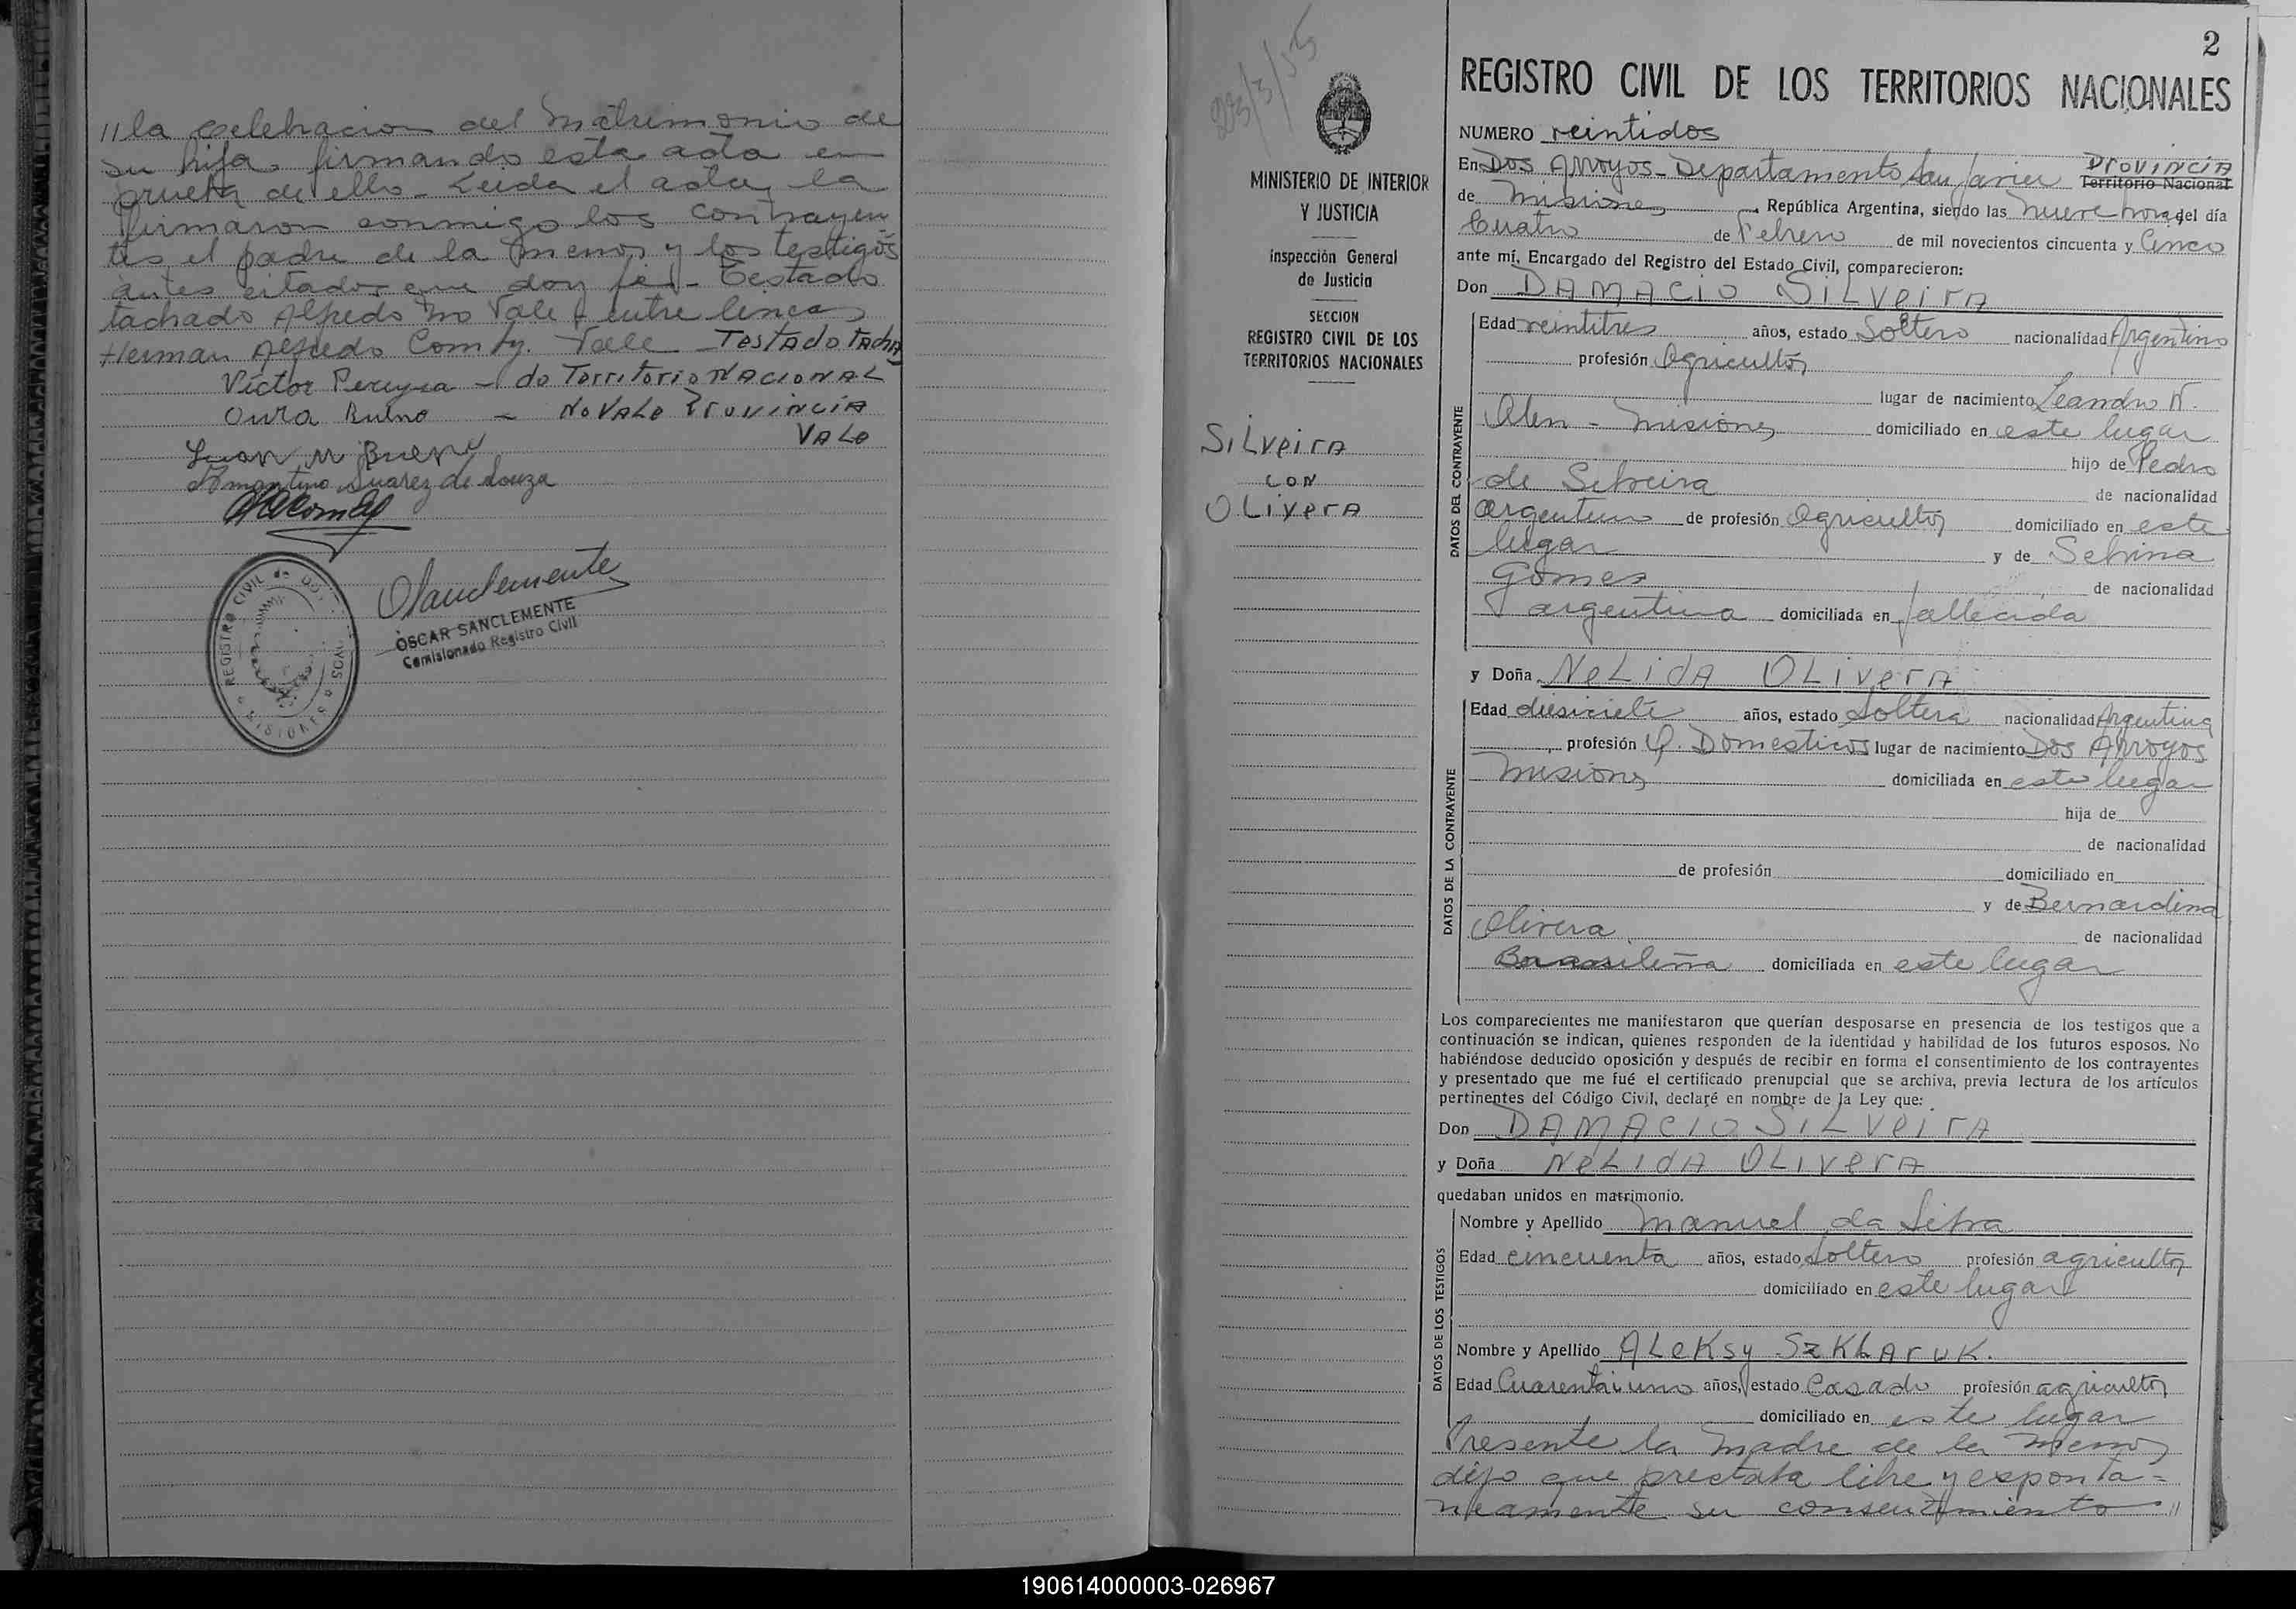 //la celebracion del matrimonio de
su hija, firmando esta acta en
prueba de ello - Leida el acta, la
firmaron conmigo los contrayen
tes el padre de la menor y los testigos
antes citados que doy fé - Testado
tachado Alfredo no Vale entre lineas
Herman Alfredo Vale - TestAdo tachA
Victor Pereyra - do Territorio NACioNAL
Bueno - No VALe ProvinciA
VALe
Juan M Bueno
Amantino Suarez de Souza
REGISTRO CIVIL de
MISIONES
OSanclemente
OSCAR SANCLEMENTE
Comisionado Registro Civil
23/3/55
MINISTERIO DE INTERIOR
Y JUSTICIA
Inspección General
de Justicia
SECCION
REGISTRO CIVIL DE LOS
TERRITORIOS NACIONALES
SiLveirA
CoN
OLiverA
2
REGISTRO CIVIL DE LOS TERRITORIOS NACIONALES
NUMERO veintidos
ProvinciA
En Dos Arroyos - Departamento San Javier Territorio Nacional
de Misiones, República Argentina, siendo las nueve horas del día
Cuatro de Febrero de mil novecientos cincuenta y Cinco
ante mí, Encargado del Registro del Estado Civil, comparecieron:
Don DAMACiO SiLveirA
DATOS DEL CONTRAYENTE
Edad veintitres años, estado Soltero nacionalidad Argentino
profesión Agricultor
lugar de nacimiento Leandro N.
Alem - Misiones domiciliado en este lugar
hijo de Pedro
de Silveira de nacionalidad
argentino de profesión Agricultor domiciliado en este
lugar y de Sebina
Gomes de nacionalidad
argentina domiciliada en fallecida
y Doña NeLidA OLiverA
DATOS DE LA CONTRAYENTE
Edad diesiciete años, estado Soltera nacionalidad Argentina
profesión Q. Domesticos lugar de nacimiento Dos Arroyos
Misiones domiciliada en este lugar
hija de
de nacionalidad
de profesión domiciliado en
y de Bernardina
Olivera de nacionalidad
Brasileña domiciliada en este lugar
Los comparecientes me manifestaron que querían desposarse en presencia de los testigos que a
continuación se indican, quienes responden de la identidad y habilidad de los futuros esposos. No
habiéndose deducido oposición y después de recibir en forma el consentimiento de los contrayentes
y presentado que me fué el certificado prenupcial que se archiva, previa lectura de los artículos
pertinentes del Código Civil, declaré en nombre de la Ley que:
Don DAMACiO SiLveirA
y Doña NeLidA OLiverA
quedaban unidos en matrimonio.
DATOS DE LOS TESTIGOS
Nombre y Apellido Manuel da Silva
Edad cincuenta años, estado Soltero profesión agricultor
domiciliado en este lugar
Nombre y Apellido ALeKsy SzKLAruK.
Edad Cuarentaiuno años, estado Casado profesión agricultor
domiciliado en este lugar
Presente la madre de la menor,
dijo que prestaba libre y esponta=
neamente su consentimiento //
190614000003-026967